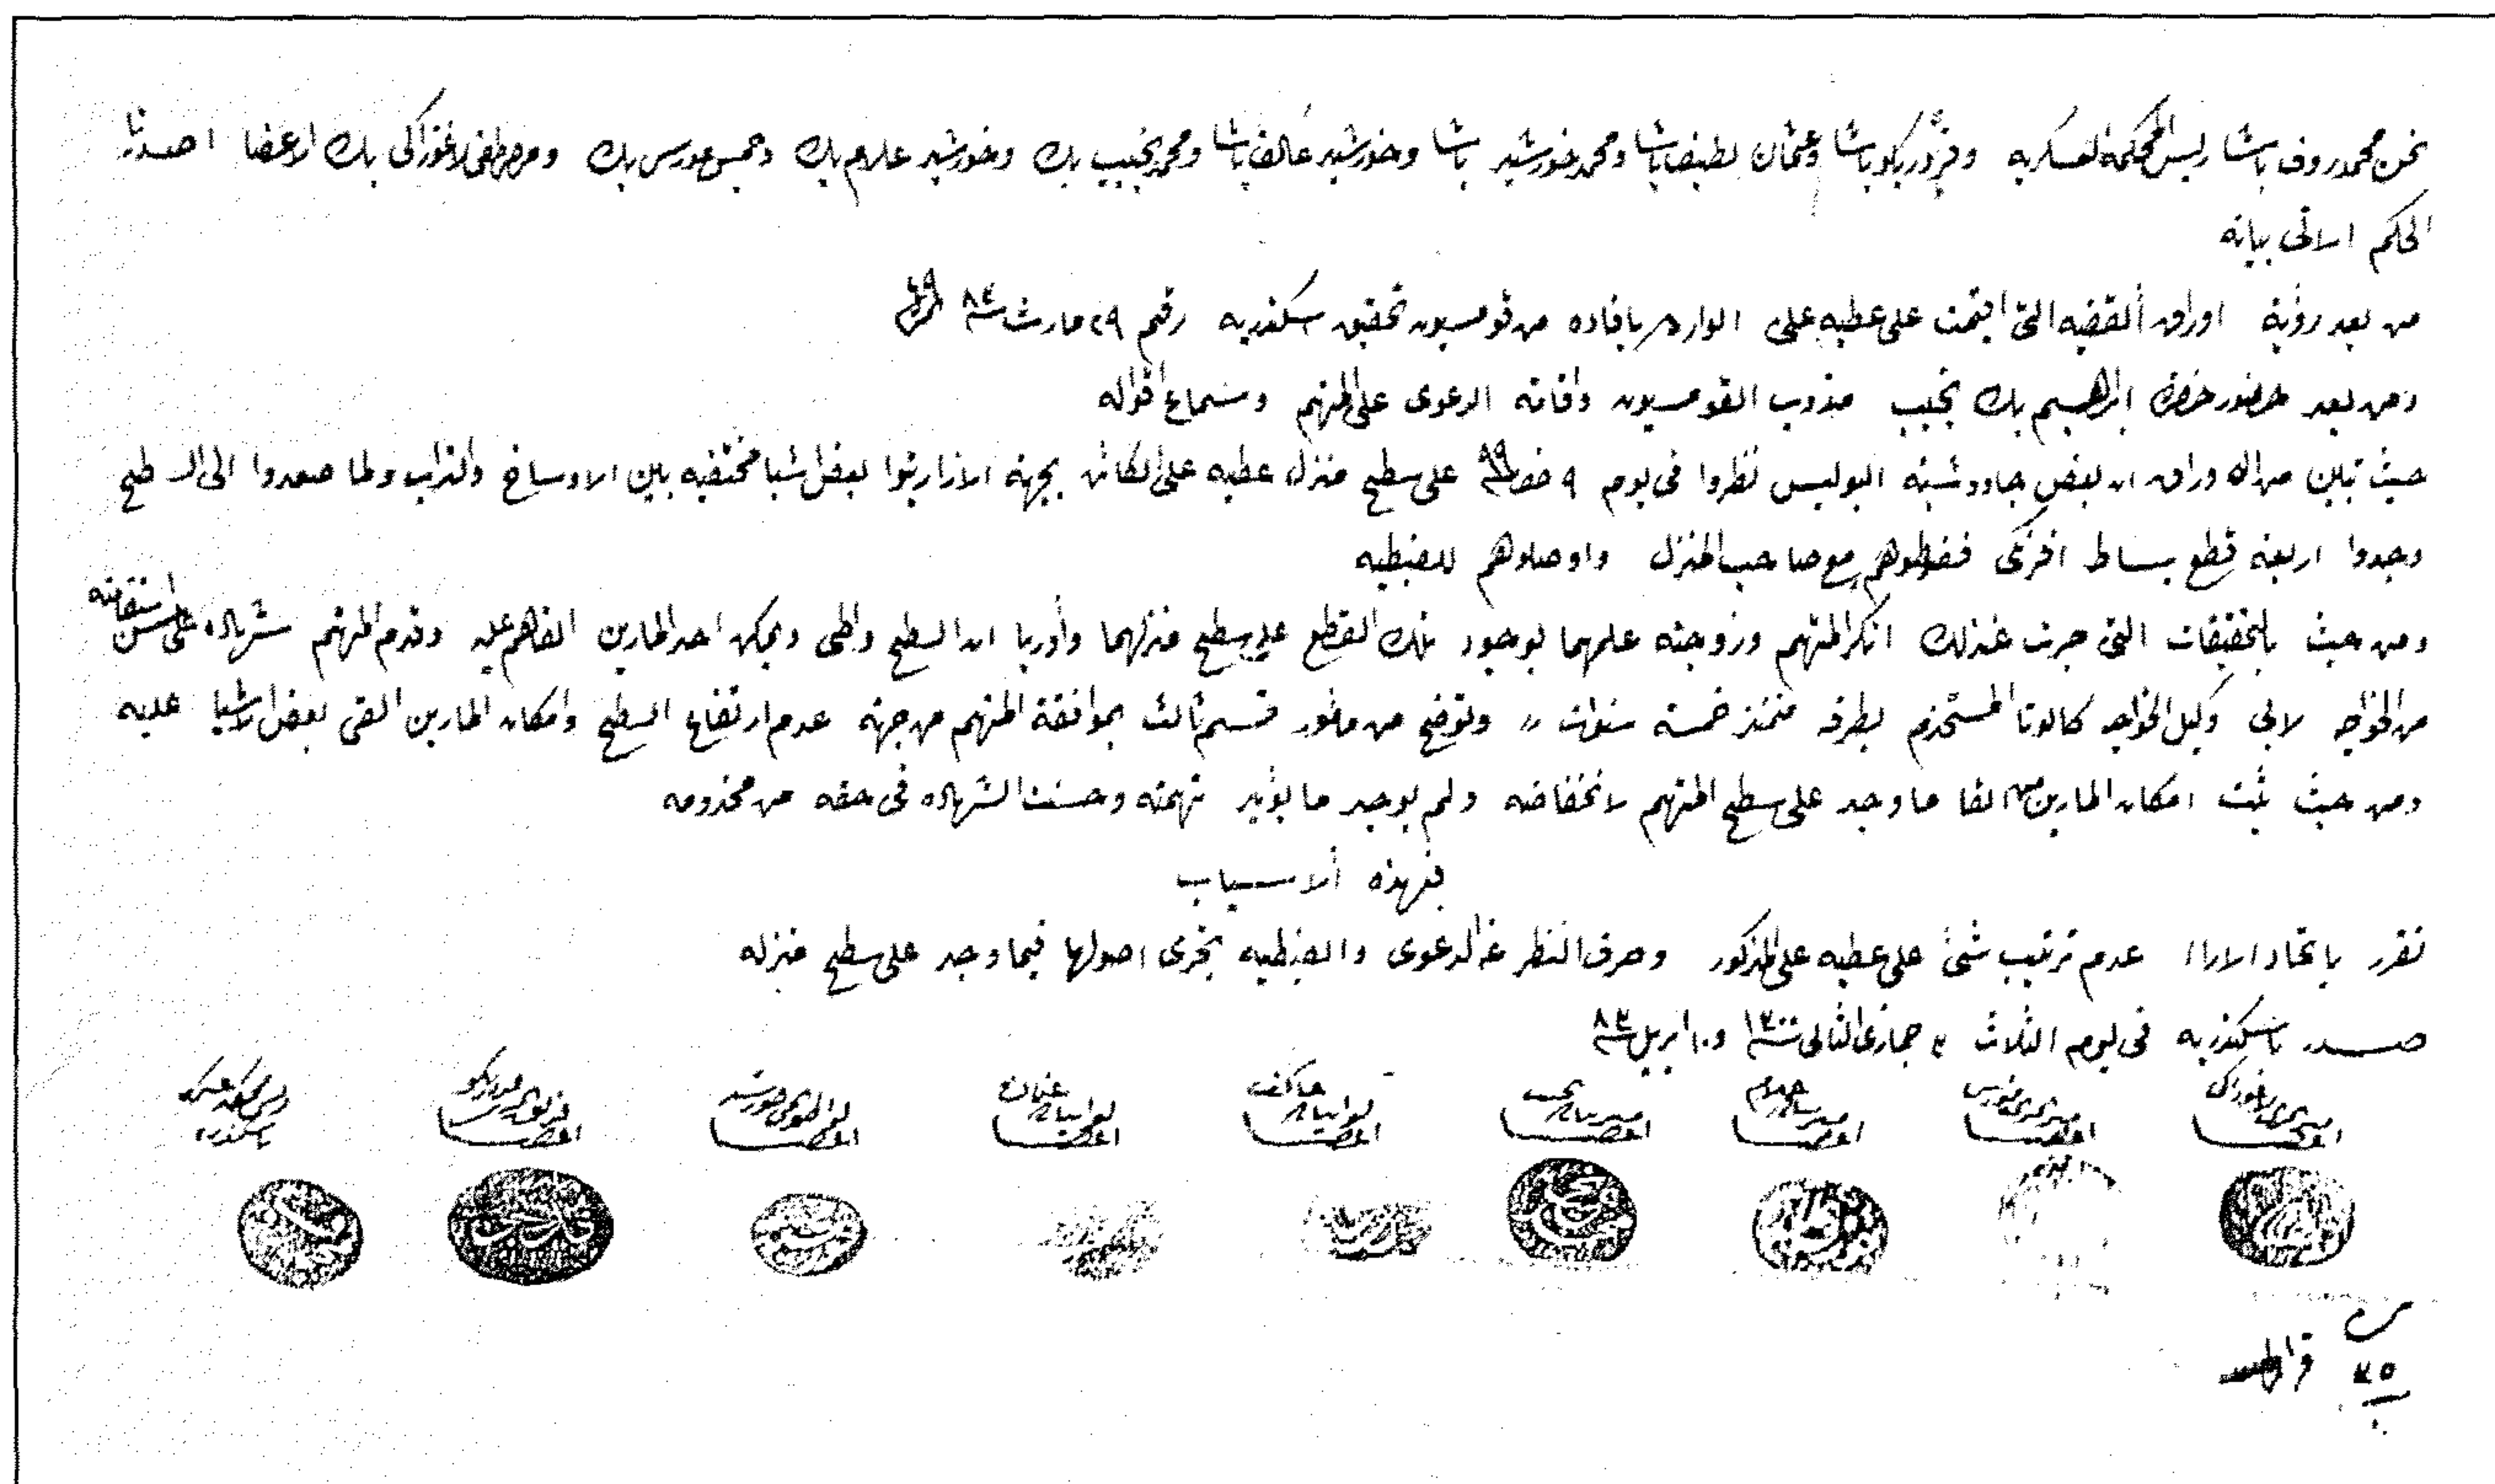 نحن محمد روف باشا ريس المحكمة العسكريه وفردريكو باشا وعثمان لطيف باشا ومحمد خورشيد باشا وخورشيد عاكف باشا ومحمد نجيب بك وخورشيد علام بك وحسن مورس بك ومصطفى لاغوزاكى بك الاعضا اصدرنا
الحكم الاتى بيانه
من بعد روئية اوراق القضيه التى اقيمت على عطيه على الوارده بافاده من قومسيون تحقيق سكندريه رقم ٢٩ مارث سنة ٨٣
ومن بعد حضور حضرة ابراهيم بك نجيب مندوب القومسيون واقامة الدعوى على المتهم وسماع اقواله
حيث تبين من الاوراق ان بعض جاووشية البوليس نظروا فى يوم ٩ سنة ٩٩ على سطح منزل عطيه على الكائن بجهة بعض اشيا مختفيه بين الاوساخ والتراب ولما صعدوا الى السطح
وجدوا اربعة قطع بساط افرنكى فضبطوهم مع صاحب المنزل واوصلوهم للضبطيه
ومن حيث بالتحقيقات التى جرت عن ذلك انكر المتهم وزوجته علمهما بوجود تلك القطع على سطح منزلهما وأوريا ان السطح واطى ويمكن احد المارين القاهم عليه وقدم المتهم شهاده على حسن استقامته
من الخواجه لابى وكيل الخواجه كالوتا المستخدم بطرفه منمنذ خمسة سنوات وتوضح من مامور قسم ثالث بموافقة المتهم من جهة عدم ارتفاع السطح وامكان المارين القى بعض الاشيا عليه
ومن حيث ثبت امكان المارين من القا ما وجد على سطح المتهم لانخفاضه ولم يوجد ما يؤيد تهمته وحسنت الشهاده فى حقه من مخدومه
فبهذه الاسباب
نقرر باتحاد الاراا عدم ترتيب شئ على عطيه على المذكور وصرف النظر عن الدعوى والضبطيه تجرى اصولها فيما وجد على سطح منزله
صدر باسكندريه فى يوم الثلاث ٣ جمادى الثانى سنة ١٣٠٠ و١٠ ابريل سنة ٨٣
ريس محكمه عسكريه اعضا اعضا اعضا اعضا اعضا اعضا اعضا اعضا
باسكندريه
٣٥